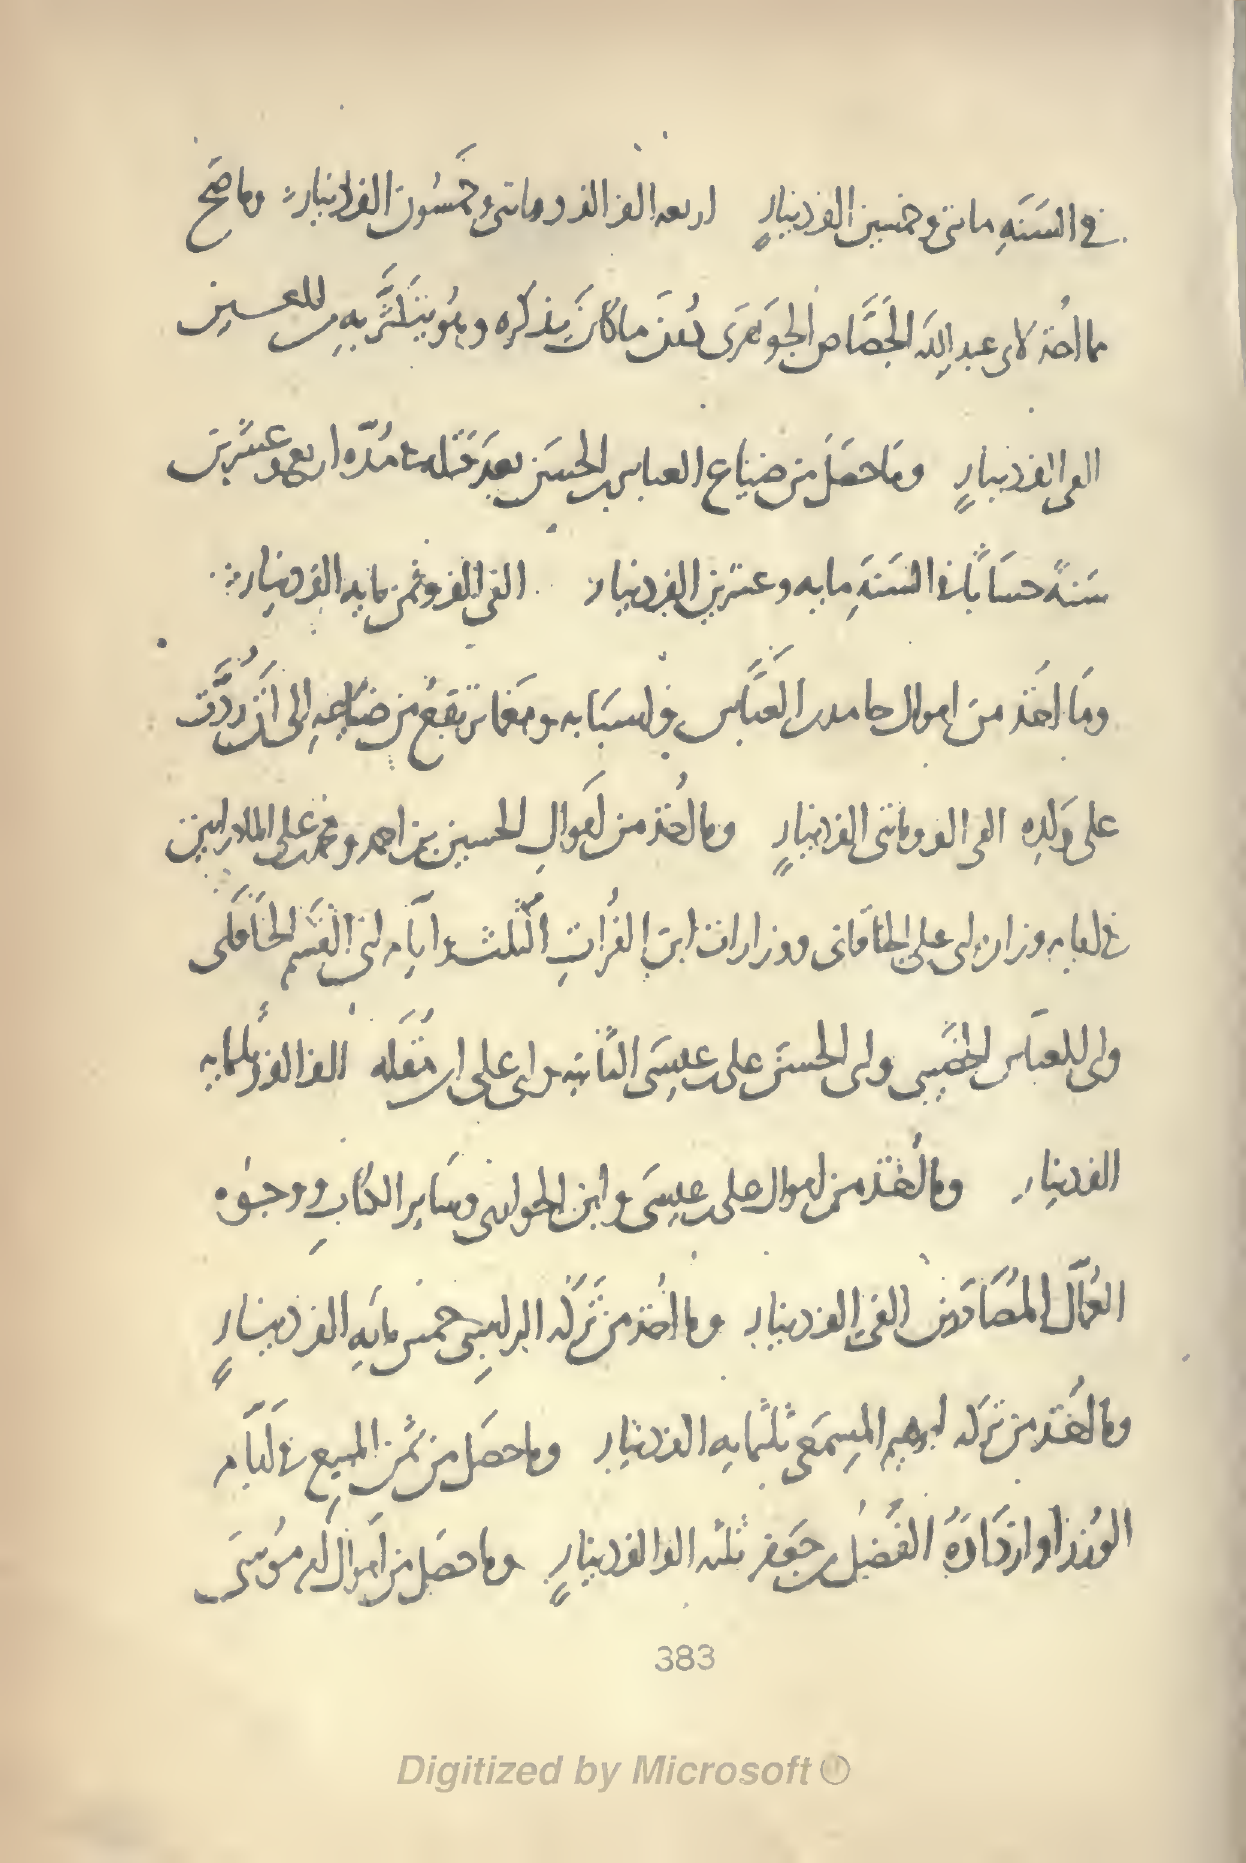 في السَنَهِ مائتى وخمسين الف دينارٍ اربعه الف الف ومائتى وخَمسُون الف دينار وما صَحّ
مما اُخذ لابى عبد الله الجَصَّاص الجَوهَرى دُون ما كان يَذكره ويَتكَثَّر به من العين
الفى الف دينارٍ ومَا حصَلَ من ضياع العباس بن الحسَن بعدَ قتله مُدّه اربع وعشرين
سَنهً حسَابًا فى السَنَهِ مايه وعشرين الف دينار الفى الف وثمن مايه الف دينار
ومَا اُخذ من اموال حامد بن العَبّاس من ضياعِهِ الى اَن رُدَّت
على وَلدِه الفى الف ومائتى الف دينارٍ وما اُخذ من اَموالِ الحسين بن احمد ومحمد بن على المادرايين
فى ايام وزاره ابى على الخاقانى ووزارات ابن الفُراتِ الثلث وايّام ابى القسم الخَاقانى
وابى العباس الخصيبى وابى الحسن على بن عيسَى الثانيه وابى على ابن مُقله الف الف وثلثمايه
الف دينار وما اُخذ من اموال على بن عيسَى وابن الحوارى وسَاير الكتابِ ووجوه
العُمّال المُصَادَرين الفى الف دينار وما اُخذ من تَركَه الراسبى خمس مائهِ الف دينارٍ
وما اُخذ من تركَه ابرهيم المِسمَعى ثلثمايه الف دينار وما حصَل من ثمن المبيع فى اَيّام
الوُزرا وازدَادَهُ الفَضلُ بن جَعفر ثلثه الف الف دينارٍ وما حصَل من اَموال ام مُوسَى
383
Digitized by Microsoft ®